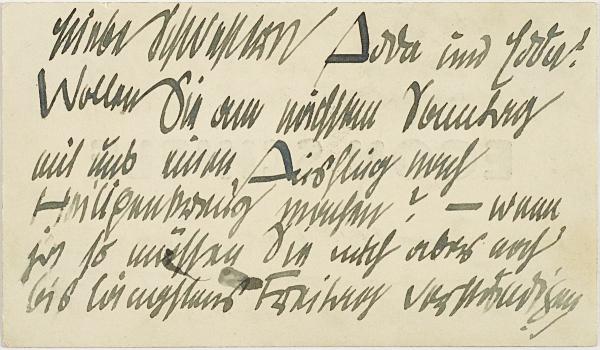 Liebe Schwestern Adda und Edda!
Wollen Sie am nächsten Sonntag
mit uns einen Ausflug nach
Heiligenkreuz machen? — wenn
ja so müssen Sie mich aber noch
bis längstens Freitag verständigen